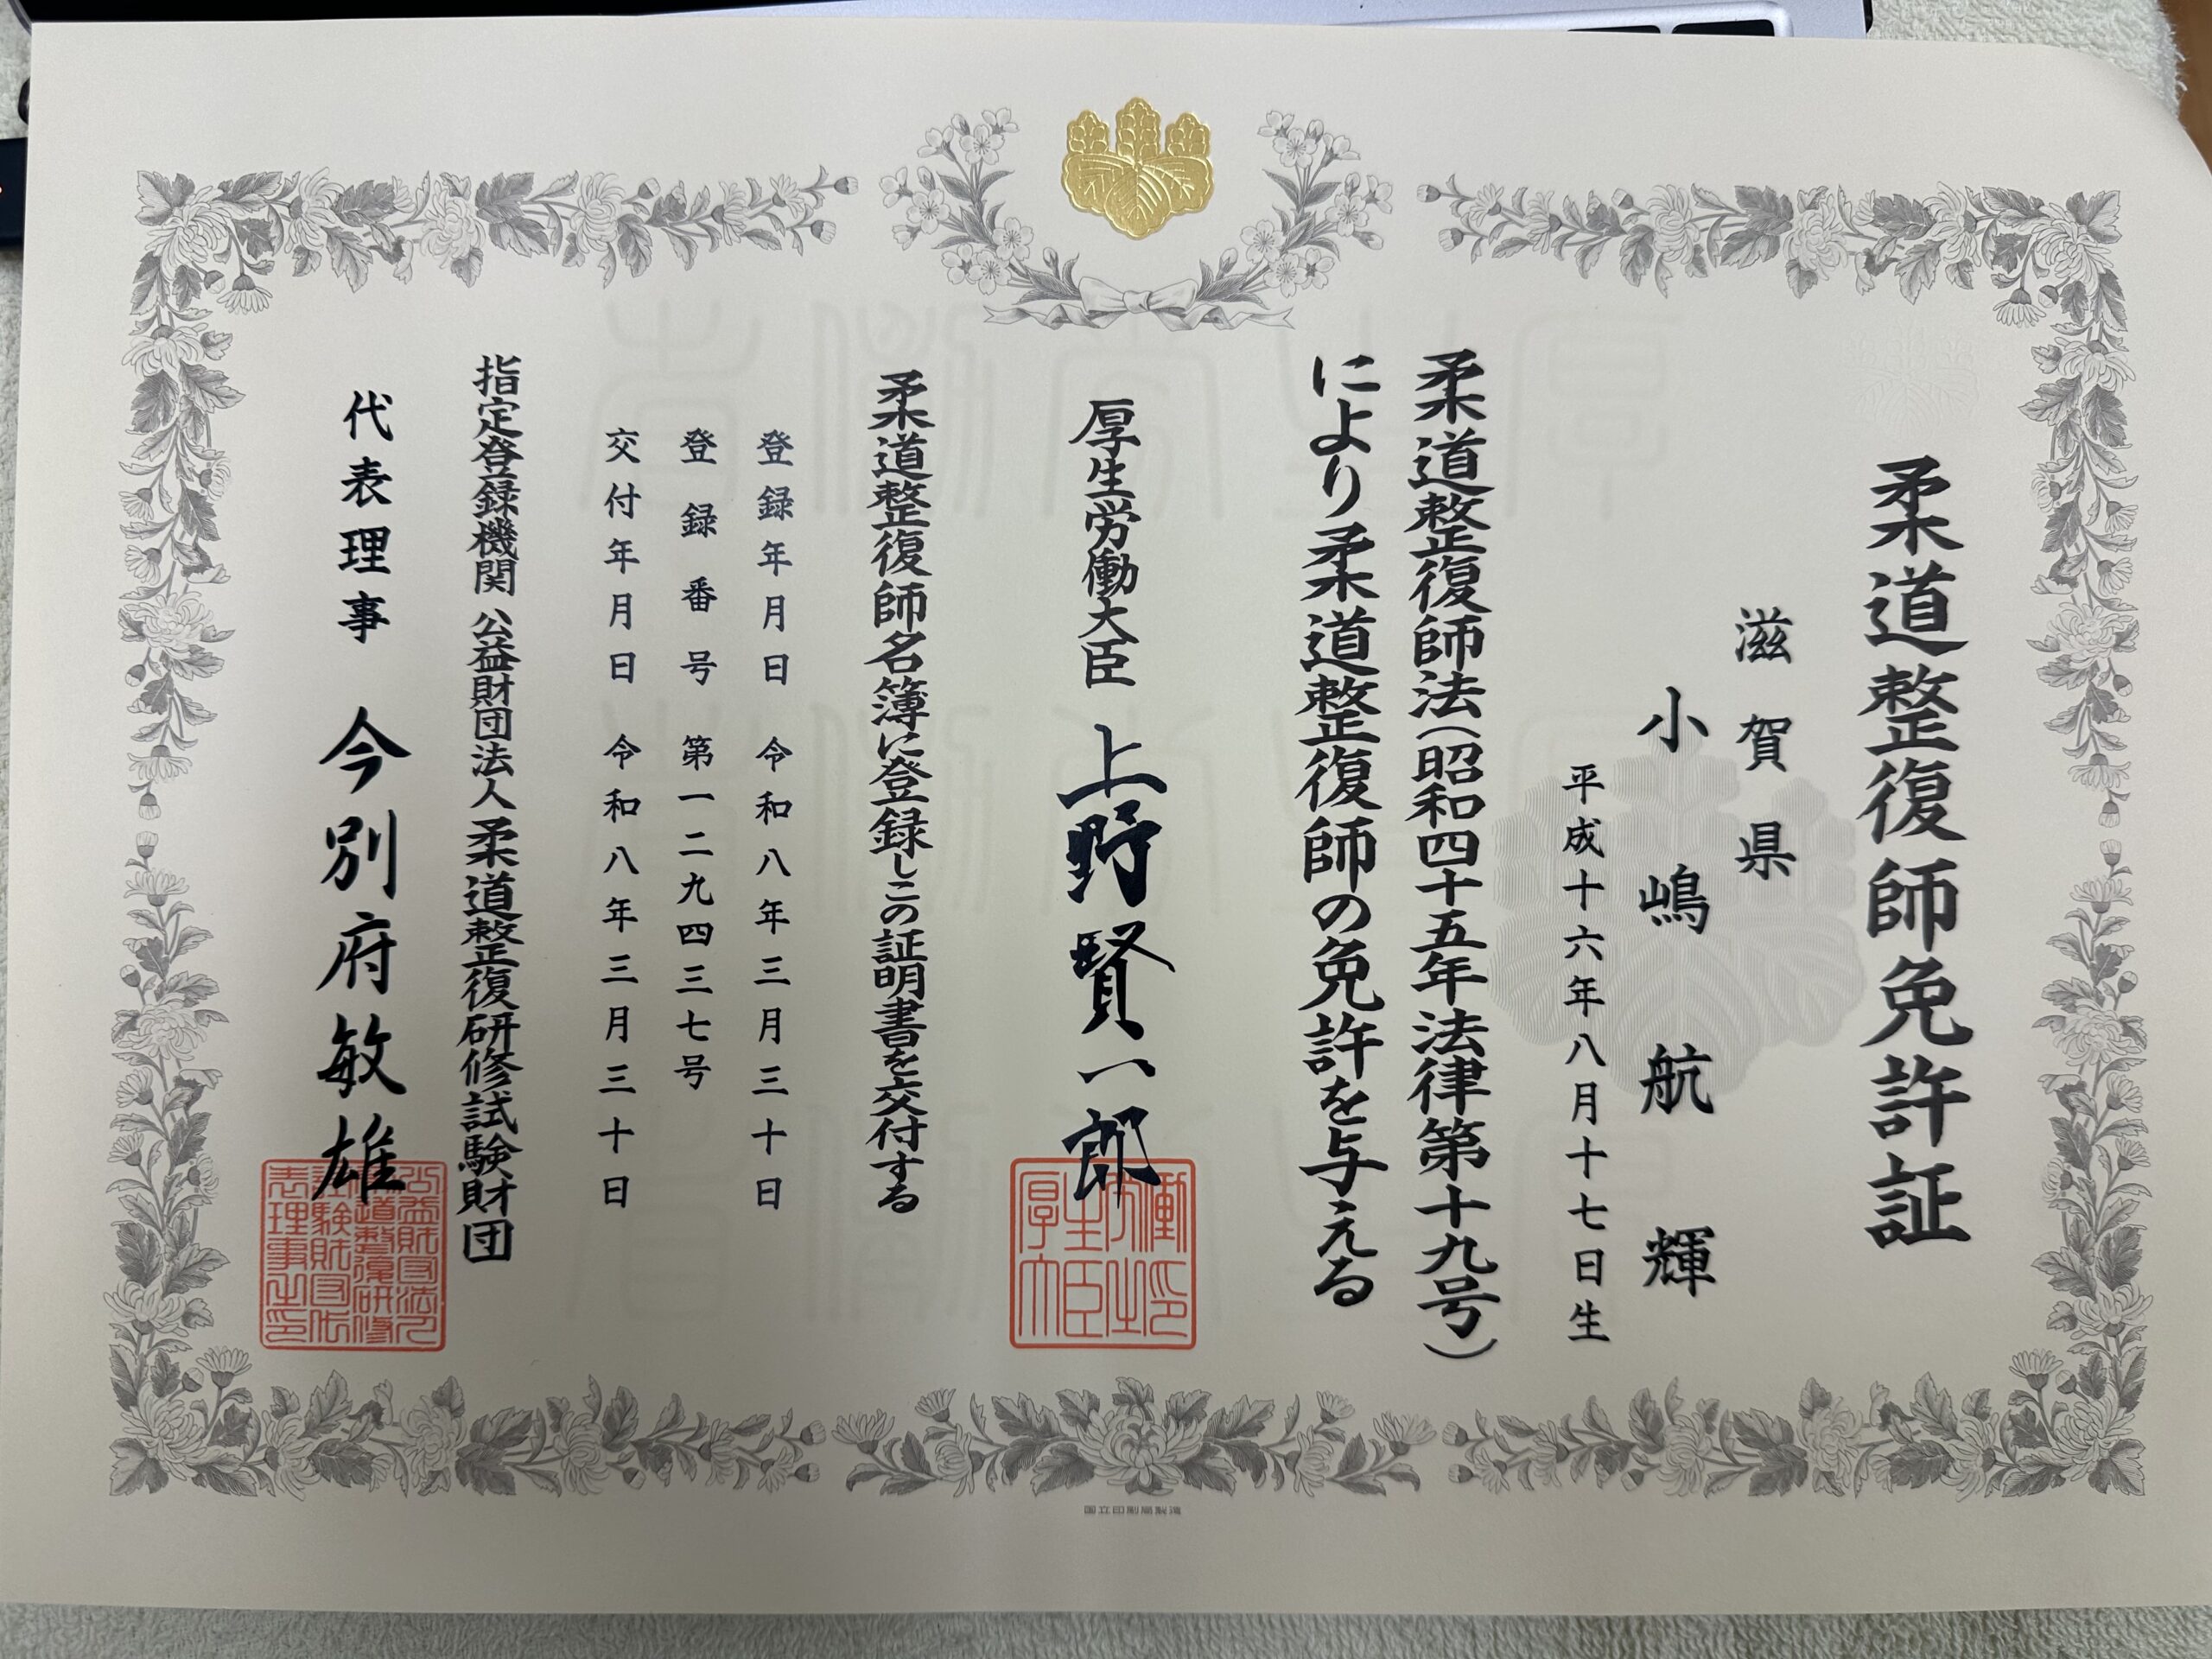 柔道整復師免許証
滋賀県
小嶋航輝
平成十六年八月十七日生
柔道整復師法(昭和四十五年法律第十九号)
により柔道整復師の免許を与える
厚生労働大臣 上野賢一郎
厚生労働大臣之印
柔道整復師名簿に登録しこの証明書を交付する
登録年月日 令和八年三月三十日
登録番号 第一二九四三七号
交付年月日 令和八年三月三十日
指定登録機関 公益財団法人 柔道整復研修試験財団
代表理事 今別府敏雄